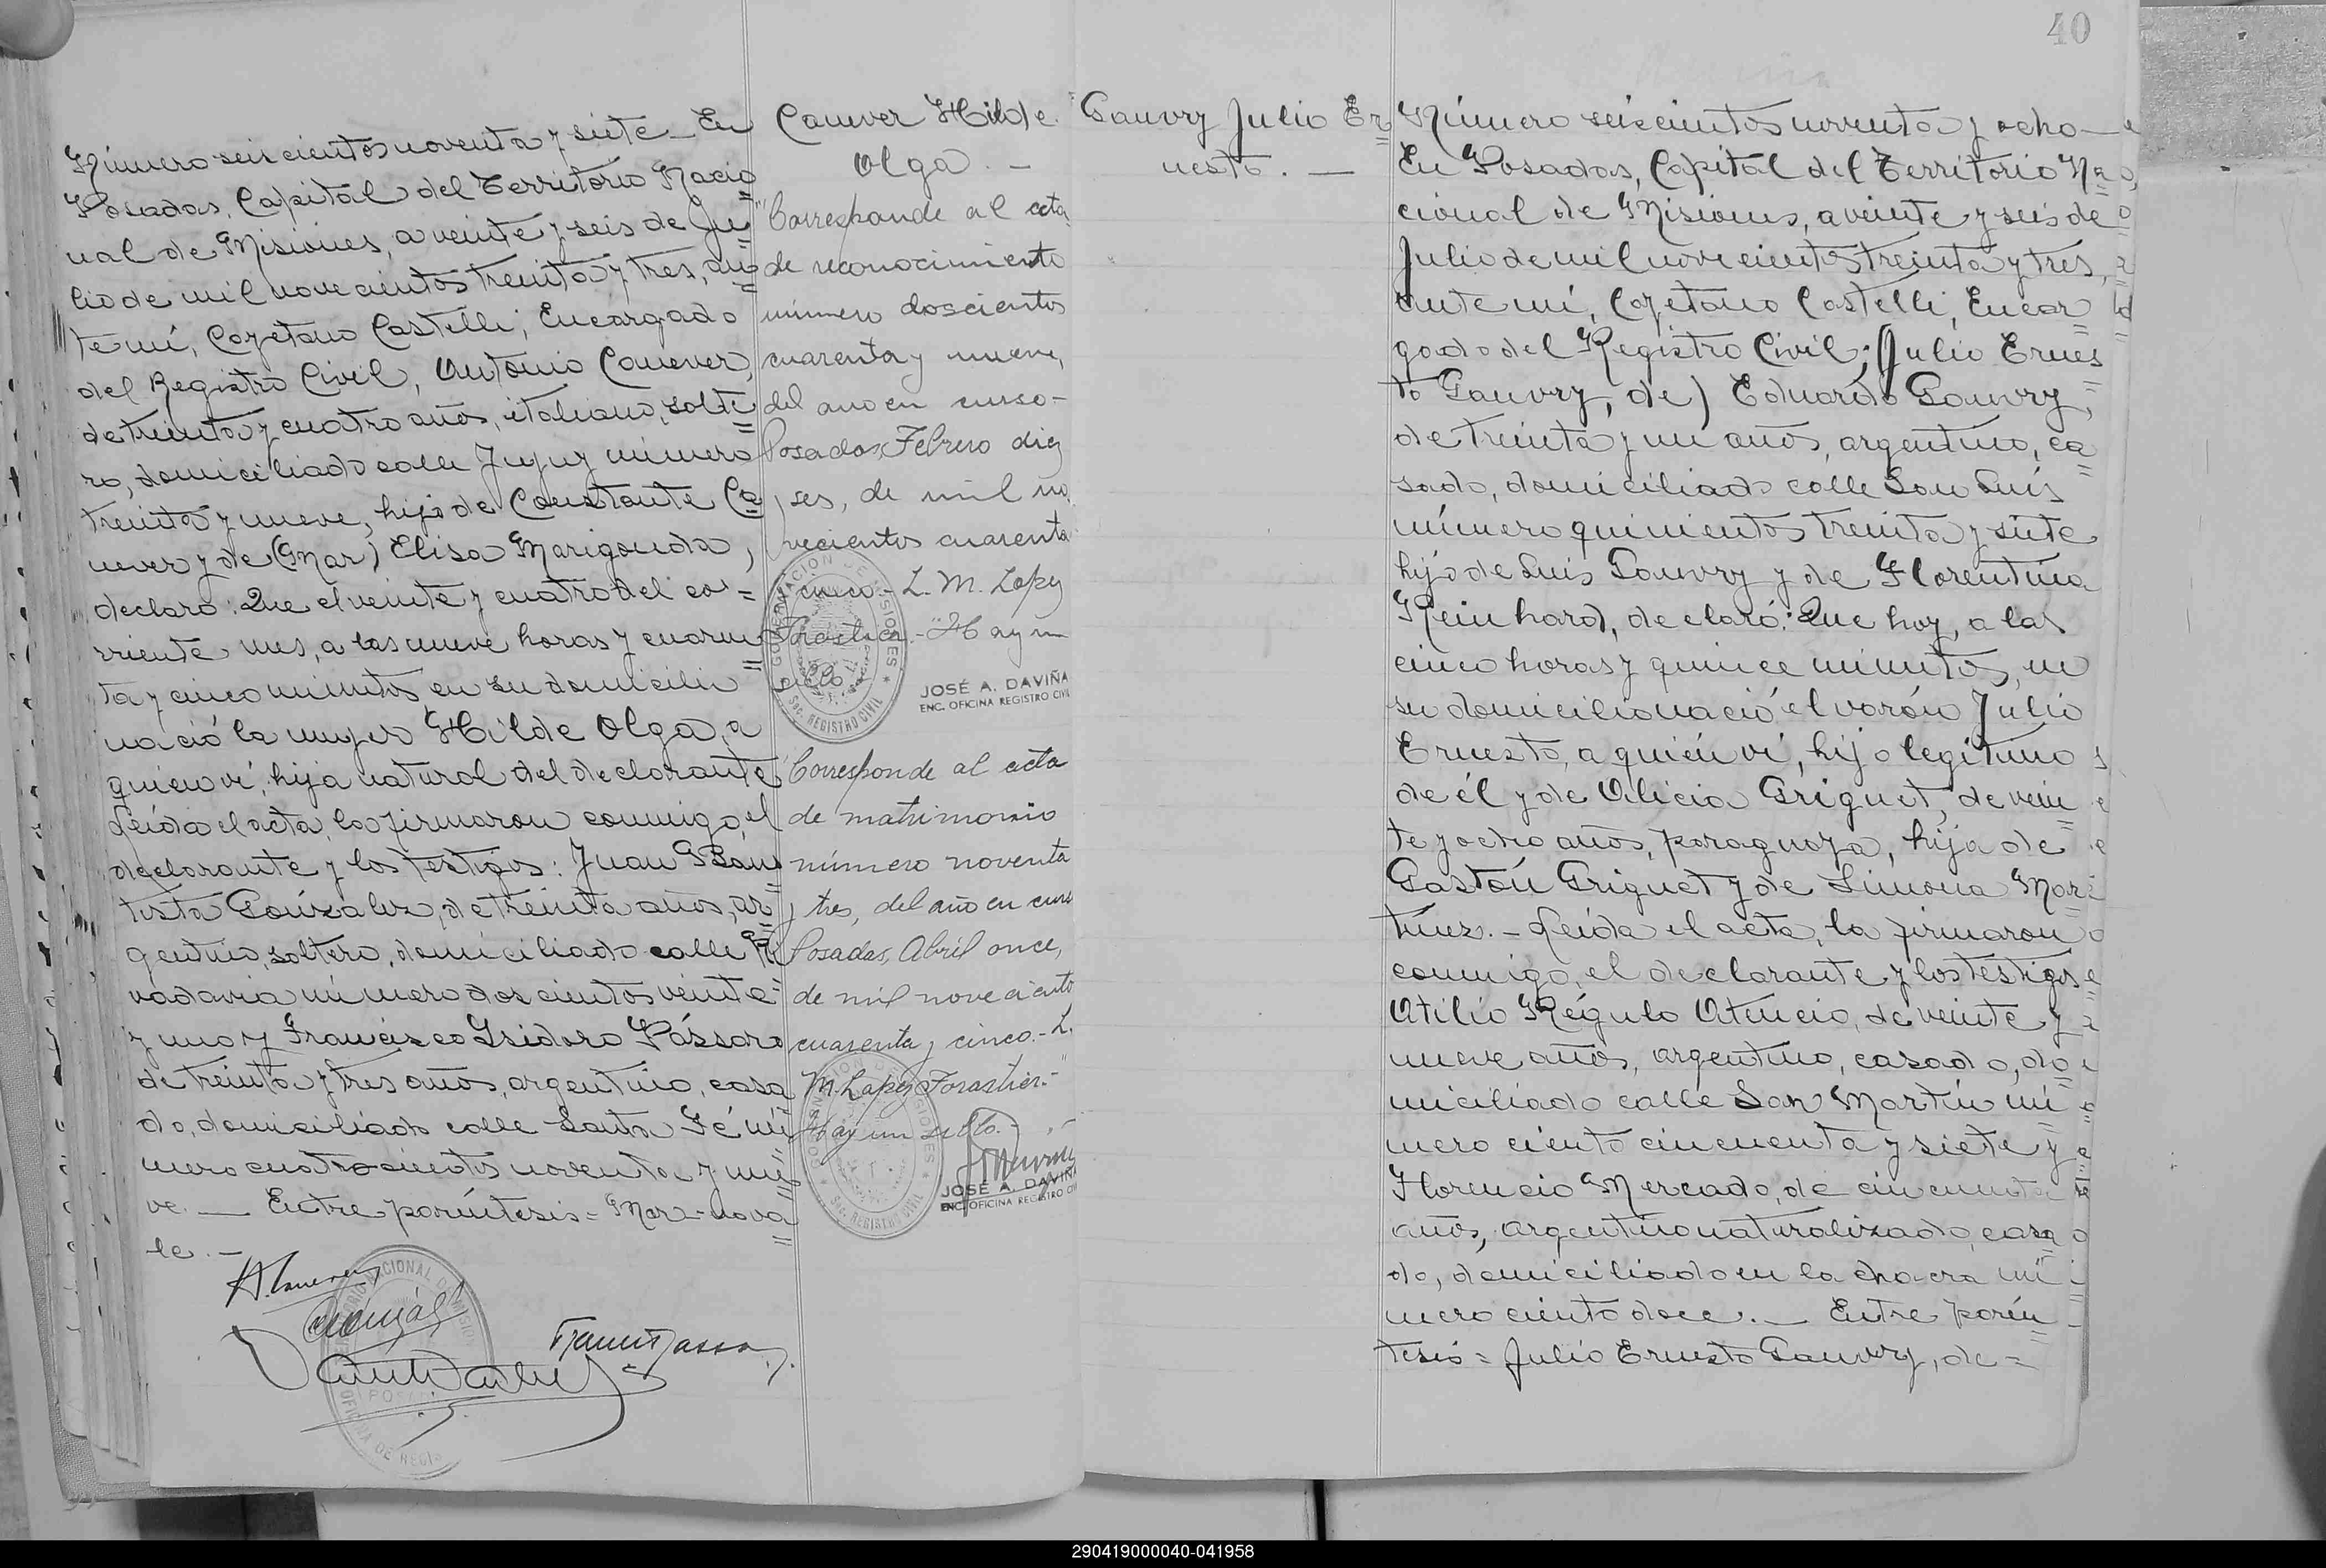 Número seiscientos noventa y siete — En
Posadas, Capital del Territorio Nacio=
nal de Misiones, a veinte y seis de Ju=
lio de mil novecientos treinta y tres, an=
te mí, Cayetano Castelli, Encargado
del Registro Civil, Antonio Canever,
de treinta y cuatro años, italiano, solte=
ro, domiciliado calle Jujuy número
treinta y nueve, hijo de Constante Ca=
never y de (Mar) Elisa Marigonda,
declaró: Que el veinte y cuatro del co=
rriente mes, a las nueve horas y cuaren=
ta y cinco minutos, en su domicilio
nació la mujer Hilde Olga, a
quien ví, hija natural del declarante
Leída el acta, la firmaron conmigo, el
declarante y los testigos: Juan Bau=
tista González, de treinta años, ar=
gentino, soltero, domiciliado calle Ri
vadavia número doscientos veinte
y uno y Francisco Isidoro Pássaro
de treinta y tres años, argentino, casa=
do, domiciliado calle Santa Fé nú=
mero cuatrocientos noventa y nue=
ve. — Entre paréntesis = Mar = no va=
le. —
Canever Hilde
Olga. —
"Corresponde al acta
de reconocimiento
número doscientos
cuarenta y nueve,
del año en curso -
Posadas, Febrero diez
y seis, de mil no
vecientos cuarenta
y cinco - L. M. Lopez
Forastier. - "Hay un
sello
GOBERNACION DE MISIONES
Sec. REGISTRO CIVIL
JOSÉ A. DAVIÑA
ENC. OFICINA REGISTRO CIVIL
"Corresponde al acta
de matrimonio
número noventa
y tres, del año en curso
Posadas, Abril once,
de mil novecientos
cuarenta y cinco. - L.
M. Lopez Forastier. -"
Hay un sello. -
GOBERNACION DE MISIONES
Sec. REGISTRO CIVIL
JOSÉ A. DAVIÑA
ENC. OFICINA REGISTRO CIVIL
40
Gauvry Julio Er=
nesto. —
Número seiscientos noventa y ocho —
En Posadas, Capital del Territorio Na=
cional de Misiones, a veinte y seis de
Julio de mil novecientos treinta y tres,
ante mí, Cayetano Castelli, Encar=
gado del Registro Civil, (Julio Ernes=
to Gauvry, de) Eduardo Gauvry,
de treinta y un años, argentino, ca=
sado, domiciliado calle San Luis
número quinientos treinta y siete
hijo de Luis Gauvry y de Florentina
Reinhard, declaró: Que hoy, a las
cinco horas y quince minutos, en
su domicilio nació el varón Julio
Ernesto, a quien ví, hijo legítimo
de él y de Alicia Griguet, de vein=
te y ocho años, paraguaya, hija de
Gastón Griguet y de Simona Mar=
tínez. — Leída el acta, la firmaron
conmigo, el declarante y los testigos
Atilio Régulo Atencio, de veinte y
nueve años, argentino, casado, do=
miciliado calle San Martín nú=
mero ciento cincuenta y siete y
Florencio Mercado, de cincuenta
años, argentino naturalizado, casa=
do, domiciliado en la chacra nú=
mero ciento doce. — Entre parén=
tesis = Julio Ernesto Gauvry, de =
290419000040-041958